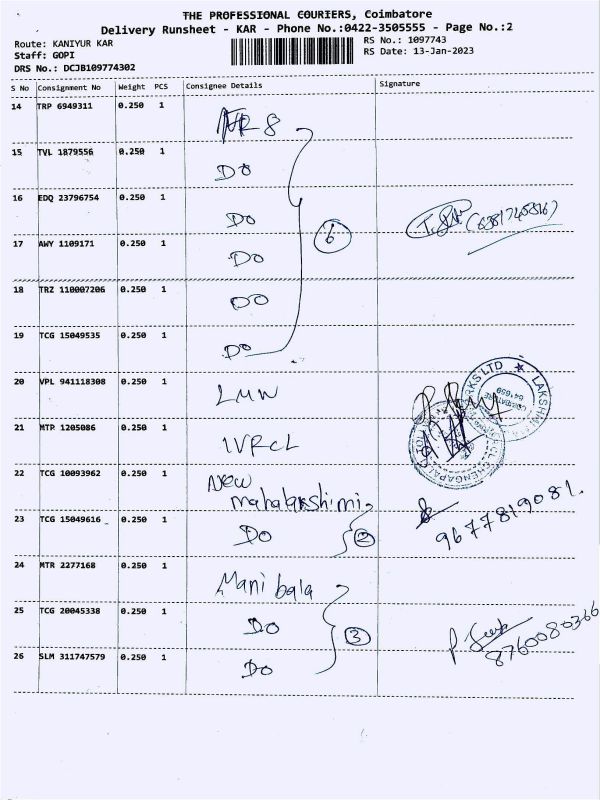 THE PROFESSIONAL COURIERS, Coimbatore
Delivery Runsheet - KAR - Phone No.:0422-3505555 - Page No.:2
Route: KANIYUR KAR
RS No.: 1097743
Staff: GOPI
RS Date: 13-Jan-2023
DRS No.: DCJB109774302
S No Consignment No Weight PCS Consignee Details Signature
14 TRP 6949311 0.250 1 8
15 TVL 1879556 0.250 1 DO
16 EDQ 23796754 0.250 1 DO
6
17 AWY 1109171 0.250 1 DO
18 TRZ 110007206 0.250 1 DO
19 TCG 15049535 0.250 1 DO
20 VPL 941118308 0.250 1 LMW
21 MTP 1205086 0.250 1 IVRCL
22 TCG 10093962 0.250 1 New
mahalakshimi
23 TCG 15049616 0.250 1 DO 2 9677819081.
24 MTR 2277168 0.250 1 Mani bala
25 TCG 20045338 0.250 1 DO 3
8760080366
26 SLM 311747579 0.250 1 DO